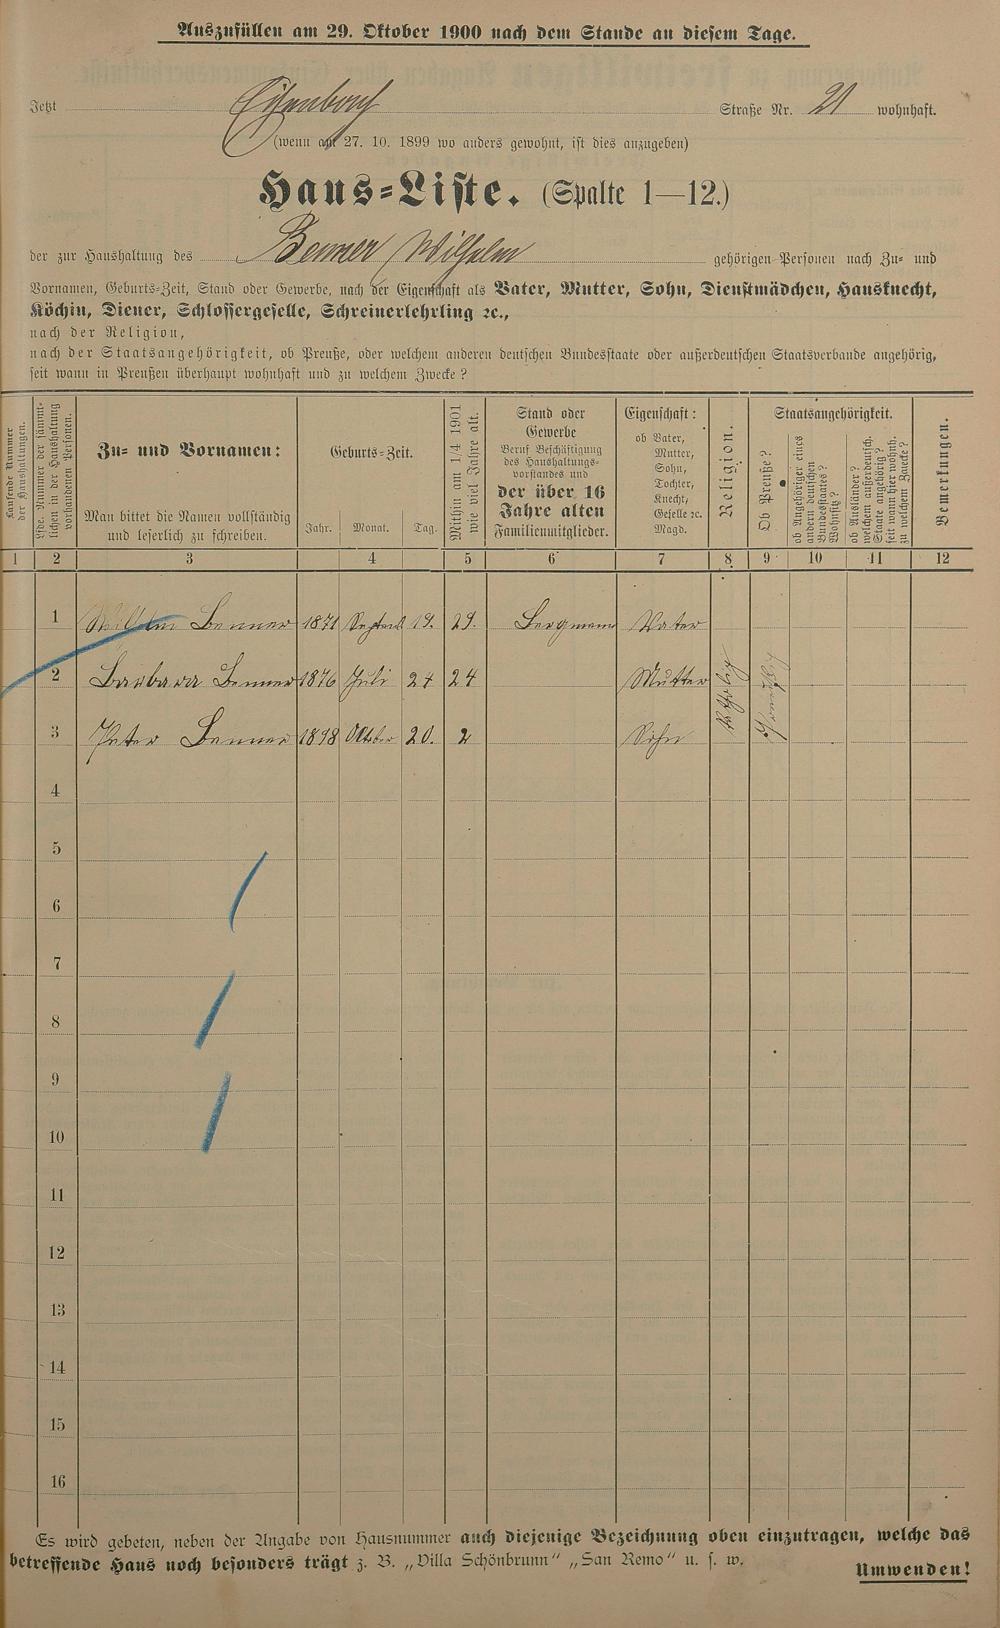 Auszufüllen am 29. Oktober 1900 nach dem Stande an diesem Tage.
Jetzt Straße Nr. 21 wohnhaft.
(wenn am 27. 10. 1899 wo anders gewohnt, ist dies anzugeben)
Haus-Liste. (Spalte 1—12.)
der zur Haushaltung des Benner Wilhelm gehörigen Personen nach Zu- und
Vornamen, Geburts-Zeit, Stand oder Gewerbe, nach der Eigenschaft als Vater, Mutter, Sohn, Dienstmädchen, Hausknecht,
Köchin, Diener, Schlossergeselle, Schreinerlehrling ꝛc.,
nach der Religion,
nach der Staatsangehörigkeit, ob Preuße, oder welchem anderen deutschen Bundesstaate oder außerdeutschen Staatsverbande angehörig,
seit wann in Preußen überhaupt wohnhaft und zu welchem Zwecke?
Laufende Nummer
der Haushaltungen.
Lfde. Nummer der sämmt-
lichen in der Haushaltung
vorhandenen Personen.
Zu- und Vornamen:
Man bittet die Namen vollständig
und leserlich zu schreiben.
Geburts-Zeit.
Jahr. Monat. Tag.
Mithin am 1/4 1901
wie viel Jahre alt.
Stand oder
Gewerbe
Beruf Beschäftigung
des Haushaltungs-
vorstandes und
der über 16
Jahre alten
Familienmitglieder.
Eigenschaft:
ob Vater,
Mutter,
Sohn,
Tochter,
Knecht,
Geselle ꝛc.
Magd.
Religion.
Staatsangehörigkeit.
Ob Preuße?
ob Angehöriger eines
andern deutschen
Bundesstaates?
Wohnsitz?
ob Ausländer?
welchem außerdeutsch.
Staate angehörig?
seit wann hier wohnh.
zu welchem Zwecke?
Bemerkungen.
1 2 3 4 5 6 7 8 9 10 11 12
1 Wilhelm Benner 1871 Septemb 19. 29. Bergmann Vater
2 Barbara Benner 1876 Juli 24 24 Mutter
3 Peter Benner 1898 Oktober 20. 2 Sohn
4
5
6
7
8
9
10
11
12
13
14
15
16
Es wird gebeten, neben der Angabe von Hausnummer auch diejenige Bezeichnung oben einzutragen, welche das
betreffende Haus noch besonders trägt z. B. „Villa Schönbrunn“ „San Remo“ u. s. w.
Umwenden!